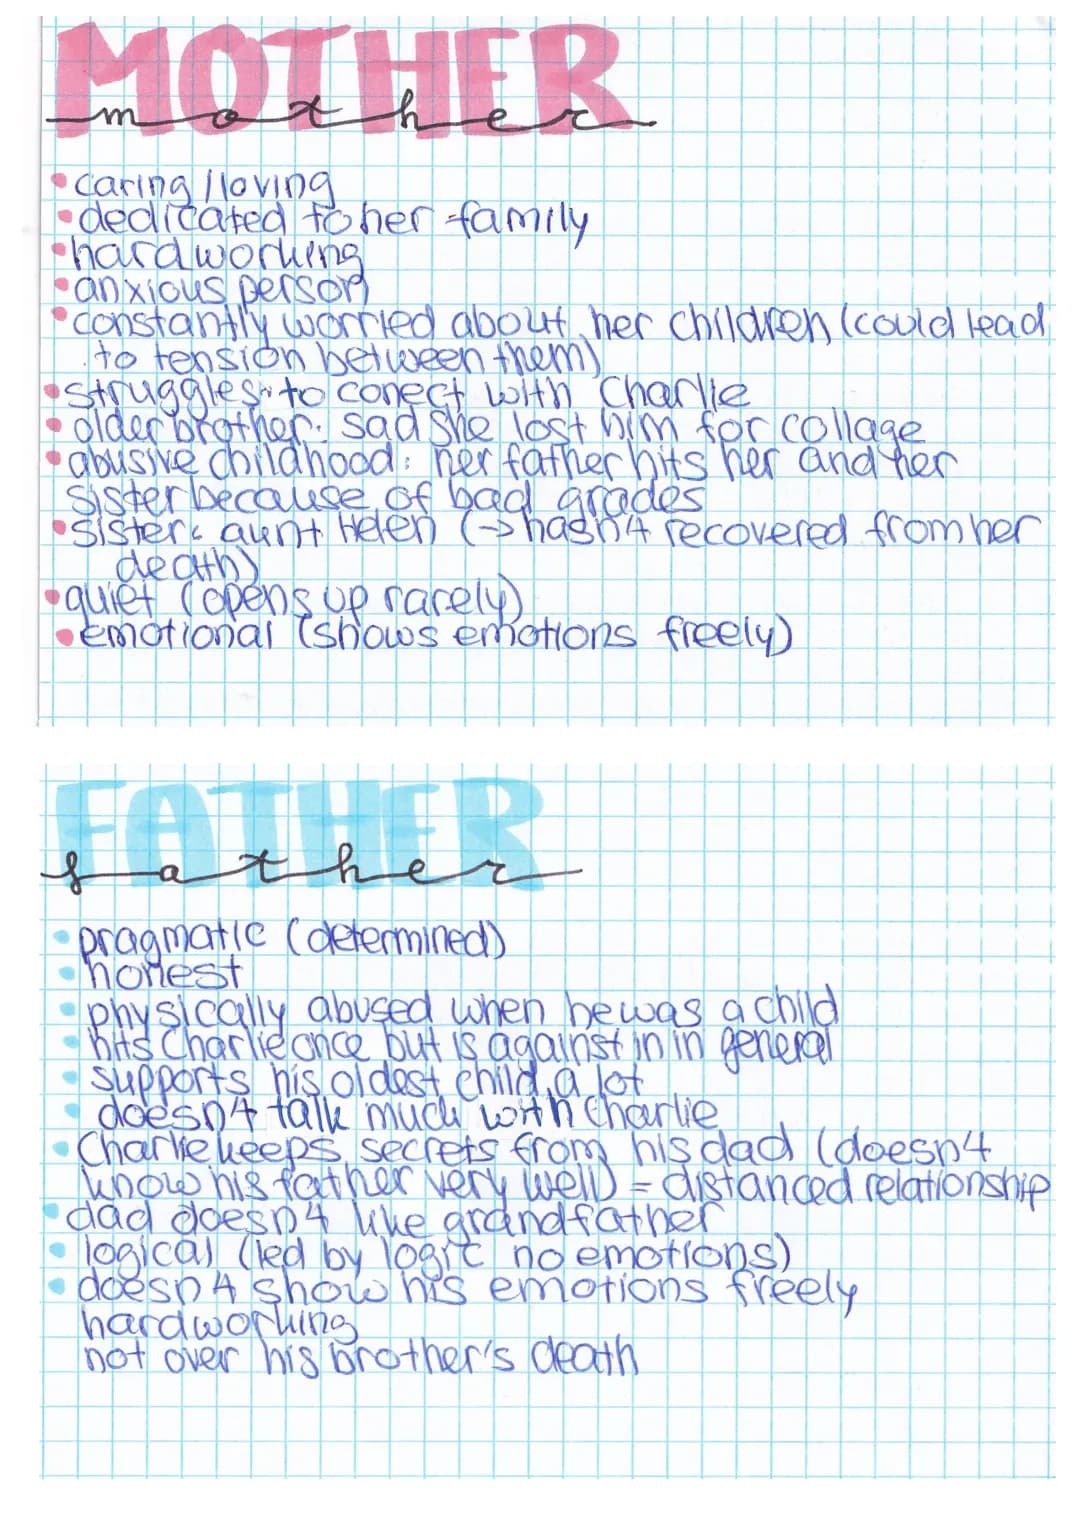 MOTHER
mother
• caring / loving
• dedicated to her family
• hardworking
• anxious person
• constantly worried about her children (could lead
to tension between them)
• struggles to conect with Charlie
• older brother: sad she lost him for collage
• abusive childhood: her father hits her and her
sister because of bad grades
• sister: aunt Helen (→ hasn't recovered from her
death)
• quiet (opens up rarely)
• emotional (shows emotions freely)
FATHER
father
• pragmatic (determined)
• honest
• physically abused when he was a child
• hits Charlie once but is against in in general
• supports his oldest child a lot
• doesn't talk much with Charlie
• Charlie keeps secrets from his dad (doesn't
know his father very well) = distanced relationship
• dad doesn't like grandfather
• logical (led by logic no emotions)
• doesn't show his emotions freely
hardworking
not over his brother's death